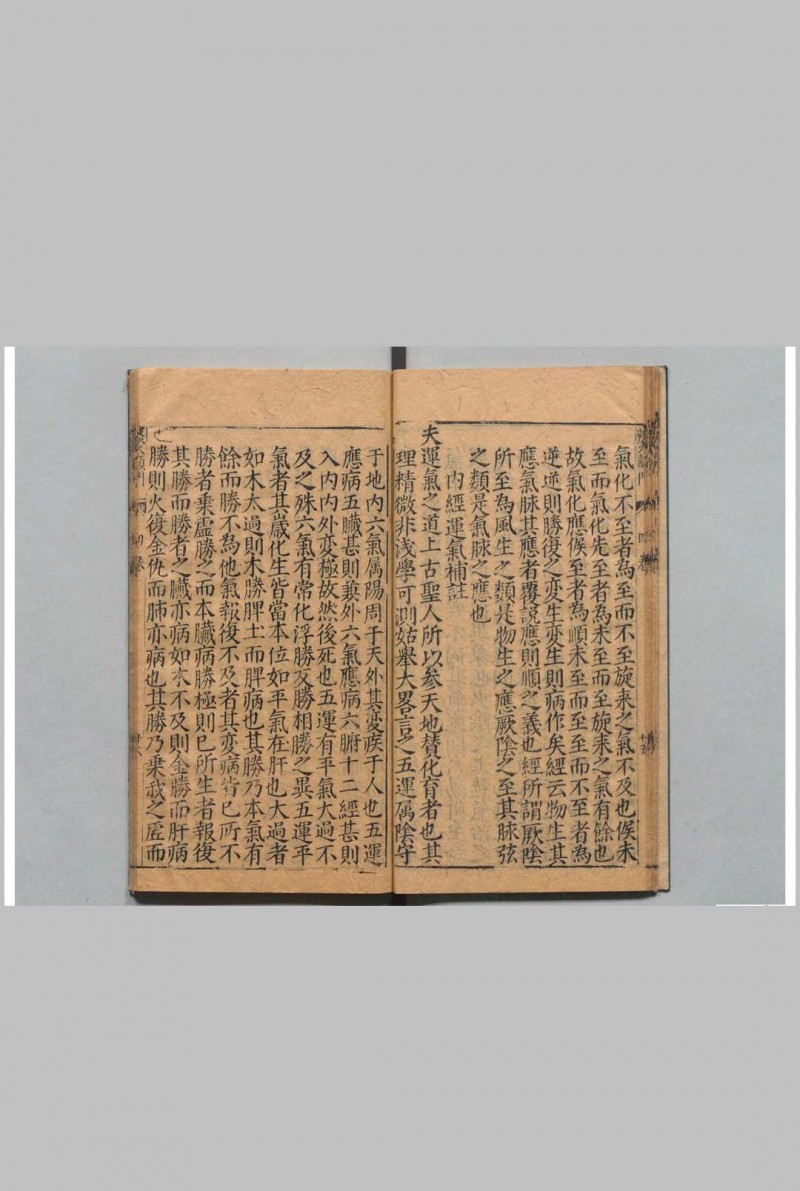 氣化不至者為至而不至旋来之氣不及也候未
至而氣化先至者為未至而至旋来之氣有餘也
故氣化應候至者為順未至而至至而不至者為
逆逆則勝復之变生变生則病作矣經云物生其
應氣脉其應者覆説應則順之義也經所謂厥陰
所至為風生之類是物生之應厥陰之至其脉弦
之類是氣脉之應也
內經運氣補註
夫運氣之道上古聖人所以参天地賛化育者也其
理精微非浅學可測姑舉大畧言之五運属陰守
于地内六氣属陽周于天外其变疾于人也五運
應病五臓甚則兼外六氣應病六腑十二經甚則
入内内外变極故然後死也五運有平氣大過不
及之殊六氣有常化淫勝反勝相勝之異五運平
氣者其歳化生皆當本位如平氣在肝也大過者
如木太過則木勝脾土而脾病也其勝乃本氣有
餘而勝不為他氣報復不及者其变病皆已所不
勝者乗虚勝之而本臓病勝極則已所生者報復
其勝而勝者之臓亦病如木不及則金勝而肝病
勝則火復金仇而肺亦病也其勝乃乗我之虚而